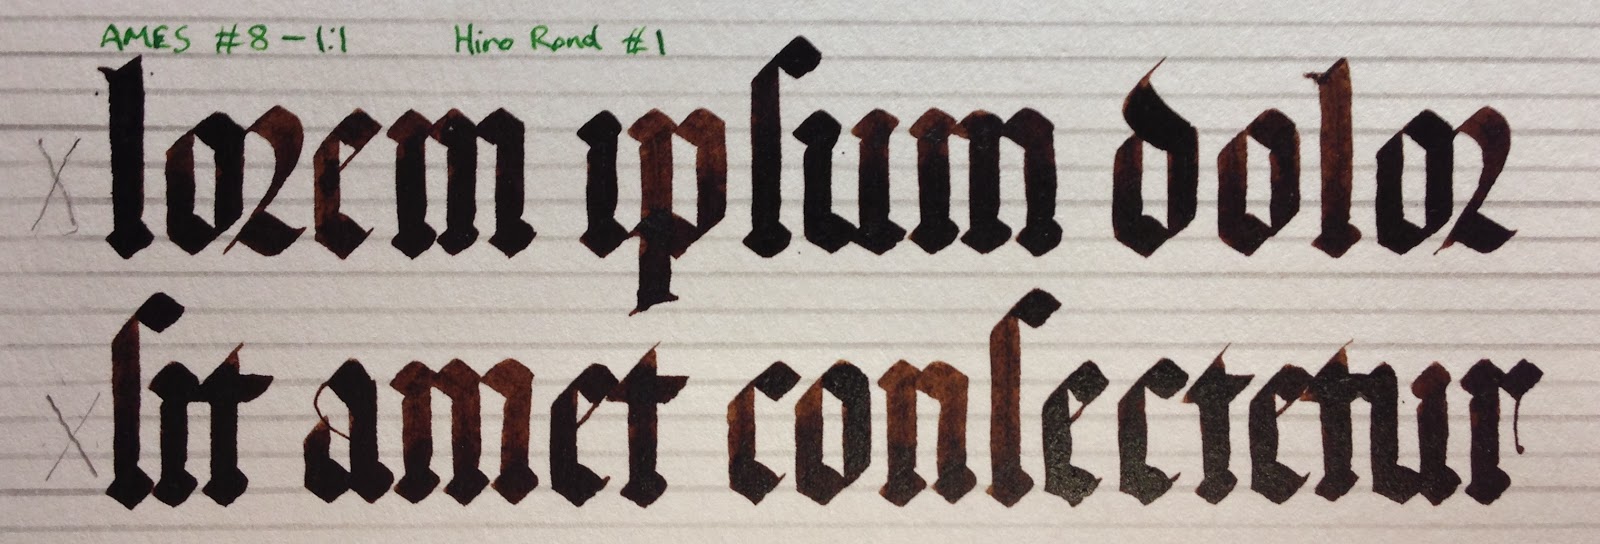 AMES #8 – 1:1 Hiro Rond #1
lorem ipſum dolor
ſit amet conſectetur